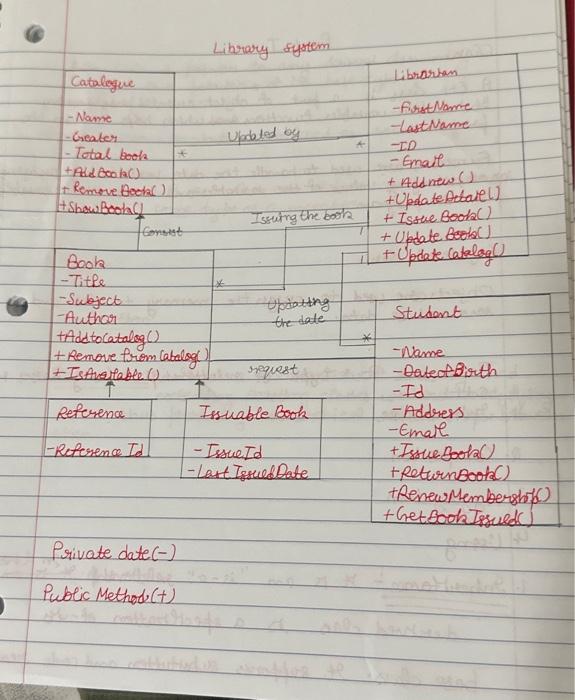 Library System
Catalogue
- Name
- Creater
- Total book
+ Add Book()
+ Remove Book()
+ Show Book()
Updated by
*
*
Librarian
- First Name
- Last Name
- ID
- Email
+ Add new()
+ Update Detail()
+ Issue Book()
+ Update Book()
+ Update Catalog()
Consist
Issuing the book
1
1
Book
- Title
- Subject
- Author
+ Add to Catalog()
+ Remove from Catalog()
+ Is Available()
*
Updating
the date
*
request
Student
- Name
- Date of Birth
- Id
- Address
- Email
+ Issue Book()
+ Return Book()
+ Renew Membership()
+ Get Book Issued()
Reference
- Reference Id
Issuable Book
- Issue Id
- Last Issued Date
Private date(-)
Public Method(+)